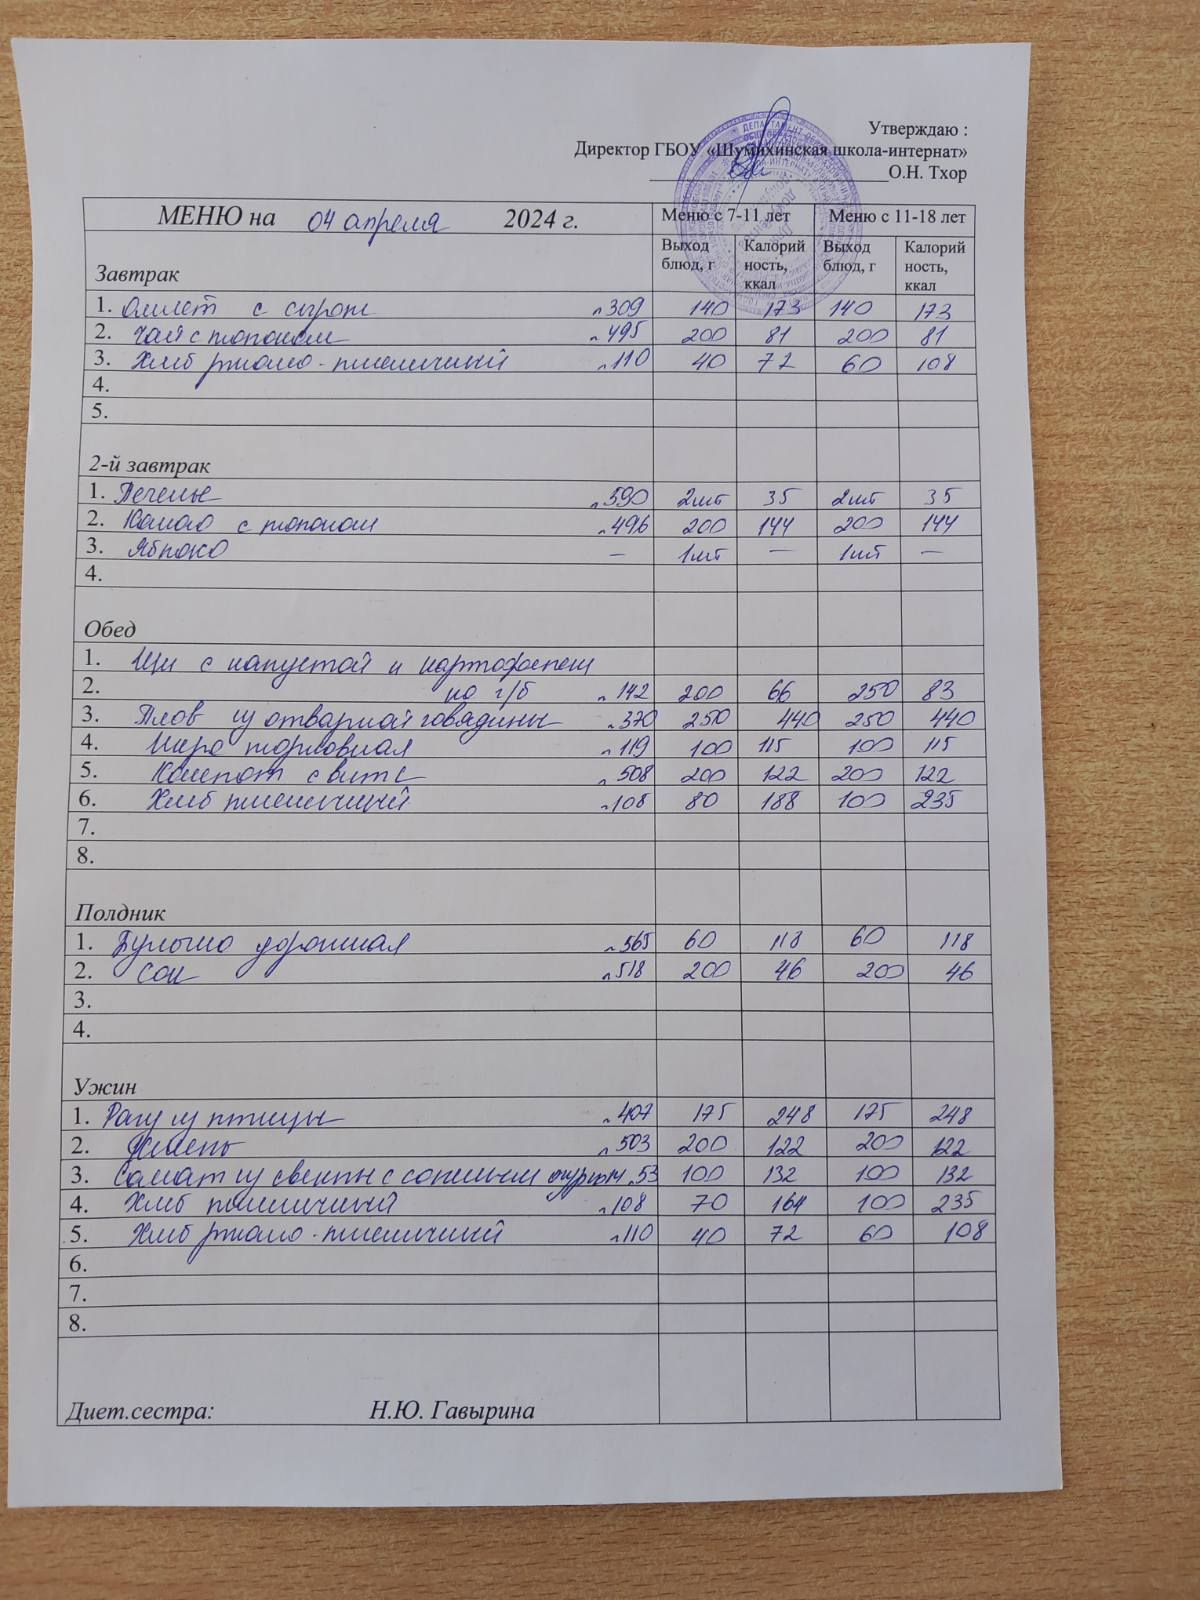 Утверждаю :
Директор ГБОУ «Шумихинская школа-интернат»
О.Н. Тхор
МЕНЮ на 04 апреля 2024 г. Меню с 7-11 лет Меню с 11-18 лет
Завтрак Выход блюд, г Калорий ность, ккал Выход блюд, г Калорий ность, ккал
1. Омлет с сыром л309 140 173 140 173
2. Чай с молоком л495 200 81 200 81
3. Хлеб ржано-пшеничный л110 40 72 60 108
4.
5.
2-й завтрак
1. Печенье л590 2шт 35 2шт 35
2. Какао с молоком л496 200 144 200 144
3. Яблоко — 1шт — 1шт —
4.
Обед
1. Щи с капустой и картофелем
2. на г/б л142 200 66 250 83
3. Плов из отварной говядины л370 250 440 250 440
4. Икра морковная л119 100 115 100 115
5. Компот с вит С л508 200 122 200 122
6. Хлеб пшеничный л108 80 188 100 235
7.
8.
Полдник
1. Булочка дорожная л565 60 118 60 118
2. Сок л518 200 46 200 46
3.
4.
Ужин
1. Рагу из птицы л407 175 248 175 248
2. Кисель л503 200 122 200 122
3. Салат из свеклы с соленым огурцом л53 100 132 100 132
4. Хлеб пшеничный л108 70 164 100 235
5. Хлеб ржано-пшеничный л110 40 72 60 108
6.
7.
8.
Диет.сестра: Н.Ю. Гавырина